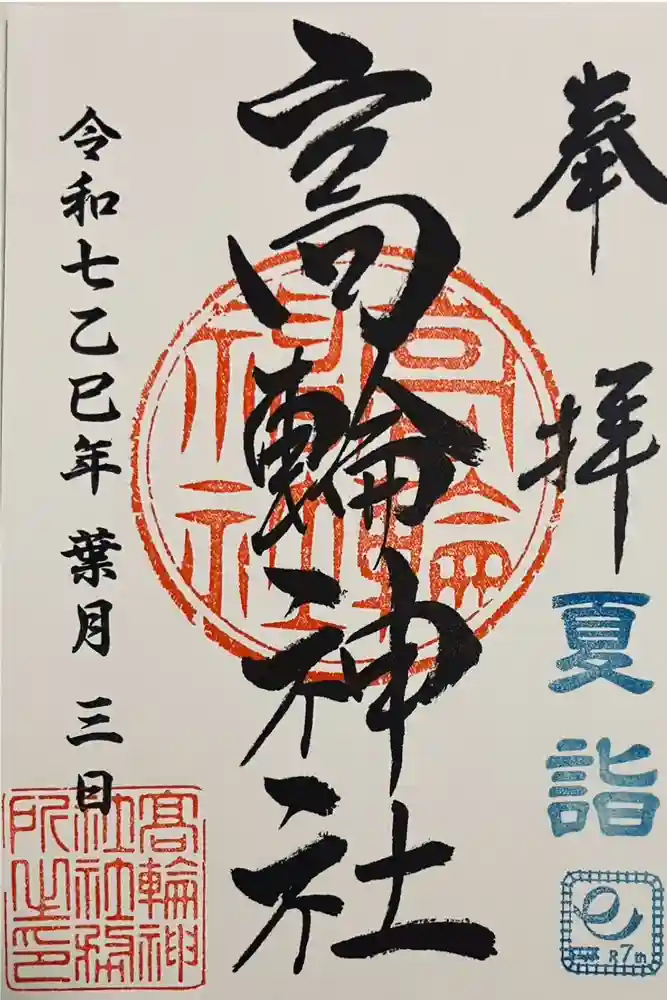 奉拝
夏詣
R7th
高輪神社
高輪神社
令和七乙巳年 葉月 三日
髙輪神社社務所之印